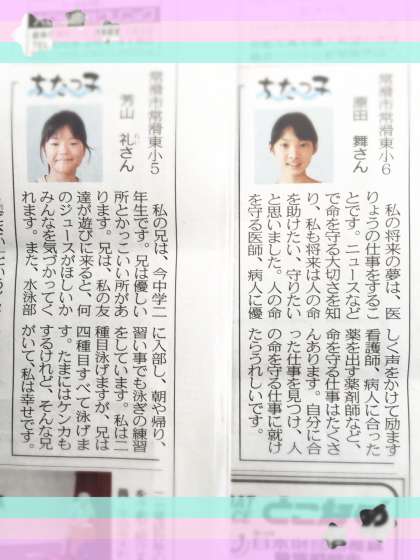 常滑市常滑東小6
原田 舞さん
ちたっ子
私の将来の夢は、医
りょうの仕事をするこ
とです。ニュースなど
で命を守る大切さを知
り、私も将来は人の命
を助けたい、守りたい
と思いました。人の命
を守る医師、病人に優
しく声をかけて励ます
看護師、病人に合った
薬を出す薬剤師など、
命を守る仕事はたくさ
んあります。自分に合
った仕事を見つけ、人
の命を守る仕事に就け
たらうれしいです。
常滑市常滑東小5
芳山 礼さん
ちたっ子
私の兄は、今中学二
年生です。兄は優しい
所とかっこいい所があ
ります。兄は、私の友
達が遊びに来ると、何
のジュースがほしいか
みんなを気づかってく
れます。また、水泳部
に入部し、朝や帰り、
習い事でも泳ぎの練習
をしています。私は二
種目泳げますが、兄は
四種目すべて泳げま
す。たまにはケンカも
するけれど、そんな兄
がいて、私は幸せです。